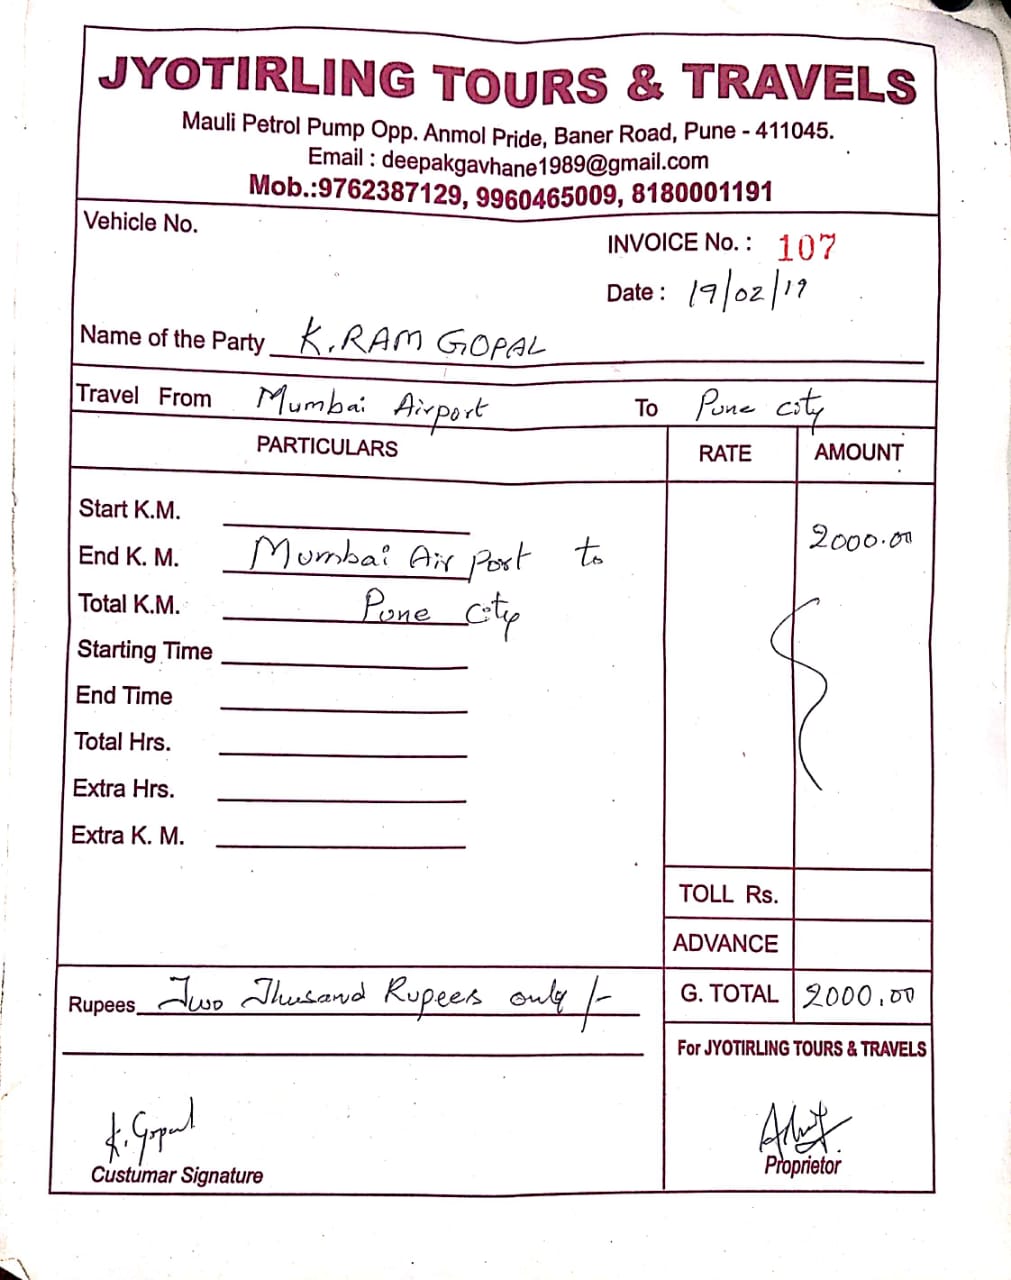 JYOTIRLING TOURS & TRAVELS
Mauli Petrol Pump Opp. Anmol Pride, Baner Road, Pune - 411045.
Email : deepakgavhane1989@gmail.com
Mob.:9762387129, 9960465009, 8180001191
Vehicle No.
INVOICE No. : 107
Date : 19/02/19
Name of the Party K. RAM GOPAL
Travel From Mumbai Airport To Pune city
PARTICULARS RATE AMOUNT
Start K.M.
2000.00
End K. M. Mumbai Air Port to
Total K.M. Pune City
Starting Time
End Time
Total Hrs.
Extra Hrs.
Extra K. M.
TOLL Rs.
ADVANCE
Rupees Two Thusand Rupees only /- G. TOTAL 2000.00
For JYOTIRLING TOURS & TRAVELS
K. Gopal
Custumar Signature Proprietor